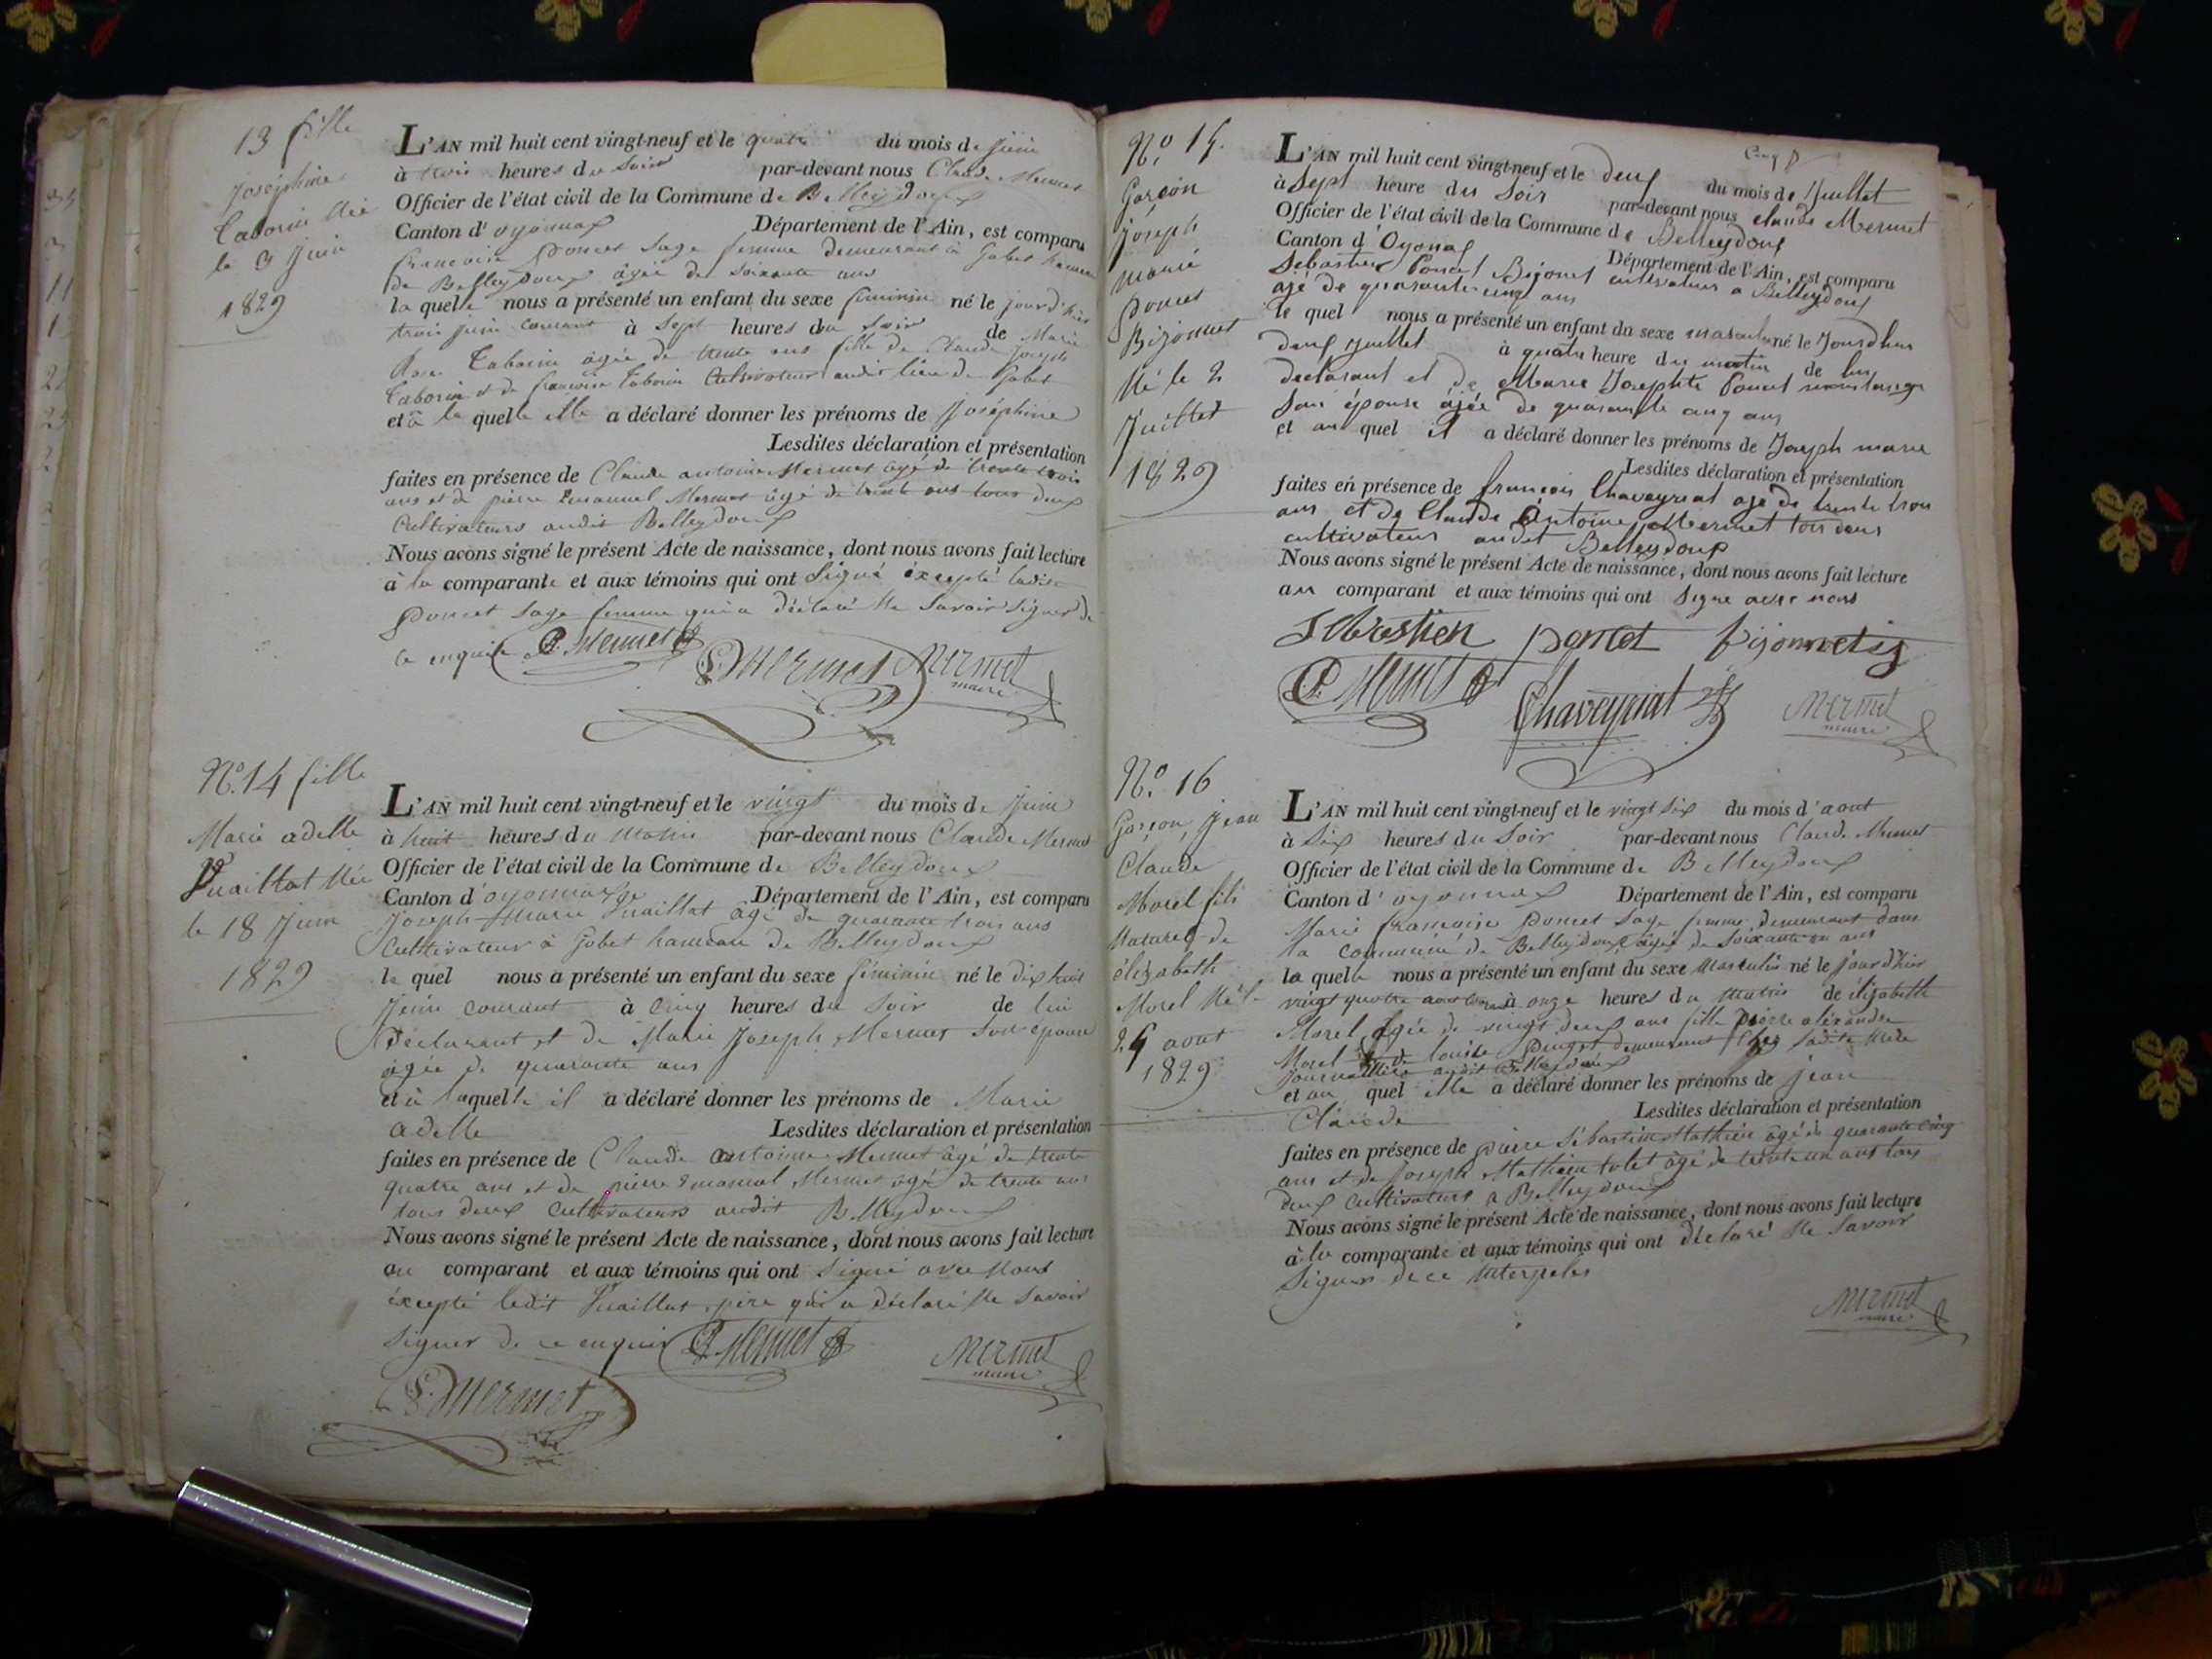 13 fille
Joséphine
Taborin Née
le 3 Juin
1829
L'AN mil huit cent vingt-neuf et le quatre du mois de Juin
à trois heures du Soir par-devant nous Claude Mermet
Officier de l'état civil de la Commune de Belleydoux
Canton d'oyonnax Département de l'Ain, est comparu
françoise Poncet Sage femme demeurant à Gobet hameau
de Belleydoux âgée de Soixante ans
la quelle nous a présenté un enfant du sexe féminin né le jour d'hier
trois juin courant à Sept heures du Soir de Marie
Taborin âgée de trente ans fille de Claude Joseph
Taborin et de françoise Taborin Cultivateur audit lieu de Gobet
et à la quelle elle a déclaré donner les prénoms de Joséphine
Lesdites déclaration et présentation
faites en présence de Claude antoine Mermet âgé de trente trois
ans et de pierre Emanuel Mermet âgé de trente ans tous deux
Cultivateurs audit Belleydoux
Nous avons signé le présent Acte de naissance, dont nous avons fait lecture
à la comparante et aux témoins qui ont Signé excepté ladite
Poncet Sage femme qui a déclaré Ne Savoir Signer de
ce enquise P. Mermet Mermet Mermet
maire
N.o 14 fille
Marie adelle
Vuaillat Née
le 18 Juin
1829
L'AN mil huit cent vingt-neuf et le vingt du mois de Juin
à huit heures du Matin par-devant nous Claude Mermet
Officier de l'état civil de la Commune de Belleydoux
Canton d'oyonnax Département de l'Ain, est comparu
Joseph Marie Vuaillat âgé de quarante trois ans
Cultivateur à Gobet hameau de Belleydoux
le quel nous a présenté un enfant du sexe féminin né le dix huit
Juin courant à Cinq heures du Soir de lui
Déclarant et de Marie Joseph Mermet Son épouse
âgée de quarante ans
et à laquelle il a déclaré donner les prénoms de Marie
adelle Lesdites déclaration et présentation
faites en présence de Claude antoine Mermet âgé de trente
quatre ans et de pierre Emanuel Mermet âgé de trente ans
tous deux Cultivateurs audit Belleydoux
Nous avons signé le présent Acte de naissance, dont nous avons fait lecture
au comparant et aux témoins qui ont Signé avec Nous
excepté ledit Vuaillat père qui a déclaré Ne Savoir
Signer de ce enquis P. Mermet Mermet
maire
Mermet
N.o 15.
Garçon
Joseph
Marie
Poncet
Bijonnet
Né le 2
Juillet
1829
L'AN mil huit cent vingt-neuf et le deux du mois de Juillet
à Sept heure du Soir par-devant nous Claude Mermet
Officier de l'état civil de la Commune de Belleydoux
Canton d'Oyonax Département de l'Ain, est comparu
Sébastien Poncet Bijonet cultivateur a Belleydoux
agé de quarante cinq ans
le quel nous a présenté un enfant du sexe masculin né le Jourdhui
deux Juillet à quatre heure du matin de lui
déclarant et de Marie Josephte Poncet
Son épouse âjée de quarante cinq ans
et au quel il a déclaré donner les prénoms de Joseph marie
Lesdites déclaration et présentation
faites en présence de françois Chaveyriat age de trente trois
ans et de Claude Antoine Mermet tous deux
cultivateur audit Belleydoux
Nous avons signé le présent Acte de naissance, dont nous avons fait lecture
au comparant et aux témoins qui ont Signe avec nous
Sebastien poncet
P. Mermet Chaveyriat Mermet
maire
N.o 16
Garçon, Jean
Claude
Morel fils
Naturel de
élizabeth
Morel Né le
24 aout
1829
L'AN mil huit cent vingt-neuf et le vingt six du mois d'aout
à Six heures du Soir par-devant nous Claude Mermet
Officier de l'état civil de la Commune de Belleydoux
Canton d'oyonnax Département de l'Ain, est comparu
Marie françoise Poncet Sage femme demeurant dans
la commune de Belleydoux âgée de Soixante un ans
la quelle nous a présenté un enfant du sexe Masculin né le jour d'hier
vingt quatre aout à onze heures du Matin de élizabeth
Morel âgée de vingt deux ans fille pierre aléxandre
Morel et de louise Poncet demeurant chez Sadite Mère
Journalière audit Belleydoux
et au quel elle a déclaré donner les prénoms de Jean
Claude Lesdites déclaration et présentation
faites en présence de pierre Sébastien Mathieu âgé de quarante cinq
ans et de Joseph Mathieu âgé de trente un ans tous
deux Cultivateurs a Belleydoux
Nous avons signé le présent Acte de naissance, dont nous avons fait lecture
à la comparante et aux témoins qui ont déclaré Ne Savoir
Signer de ce
Mermet
maire